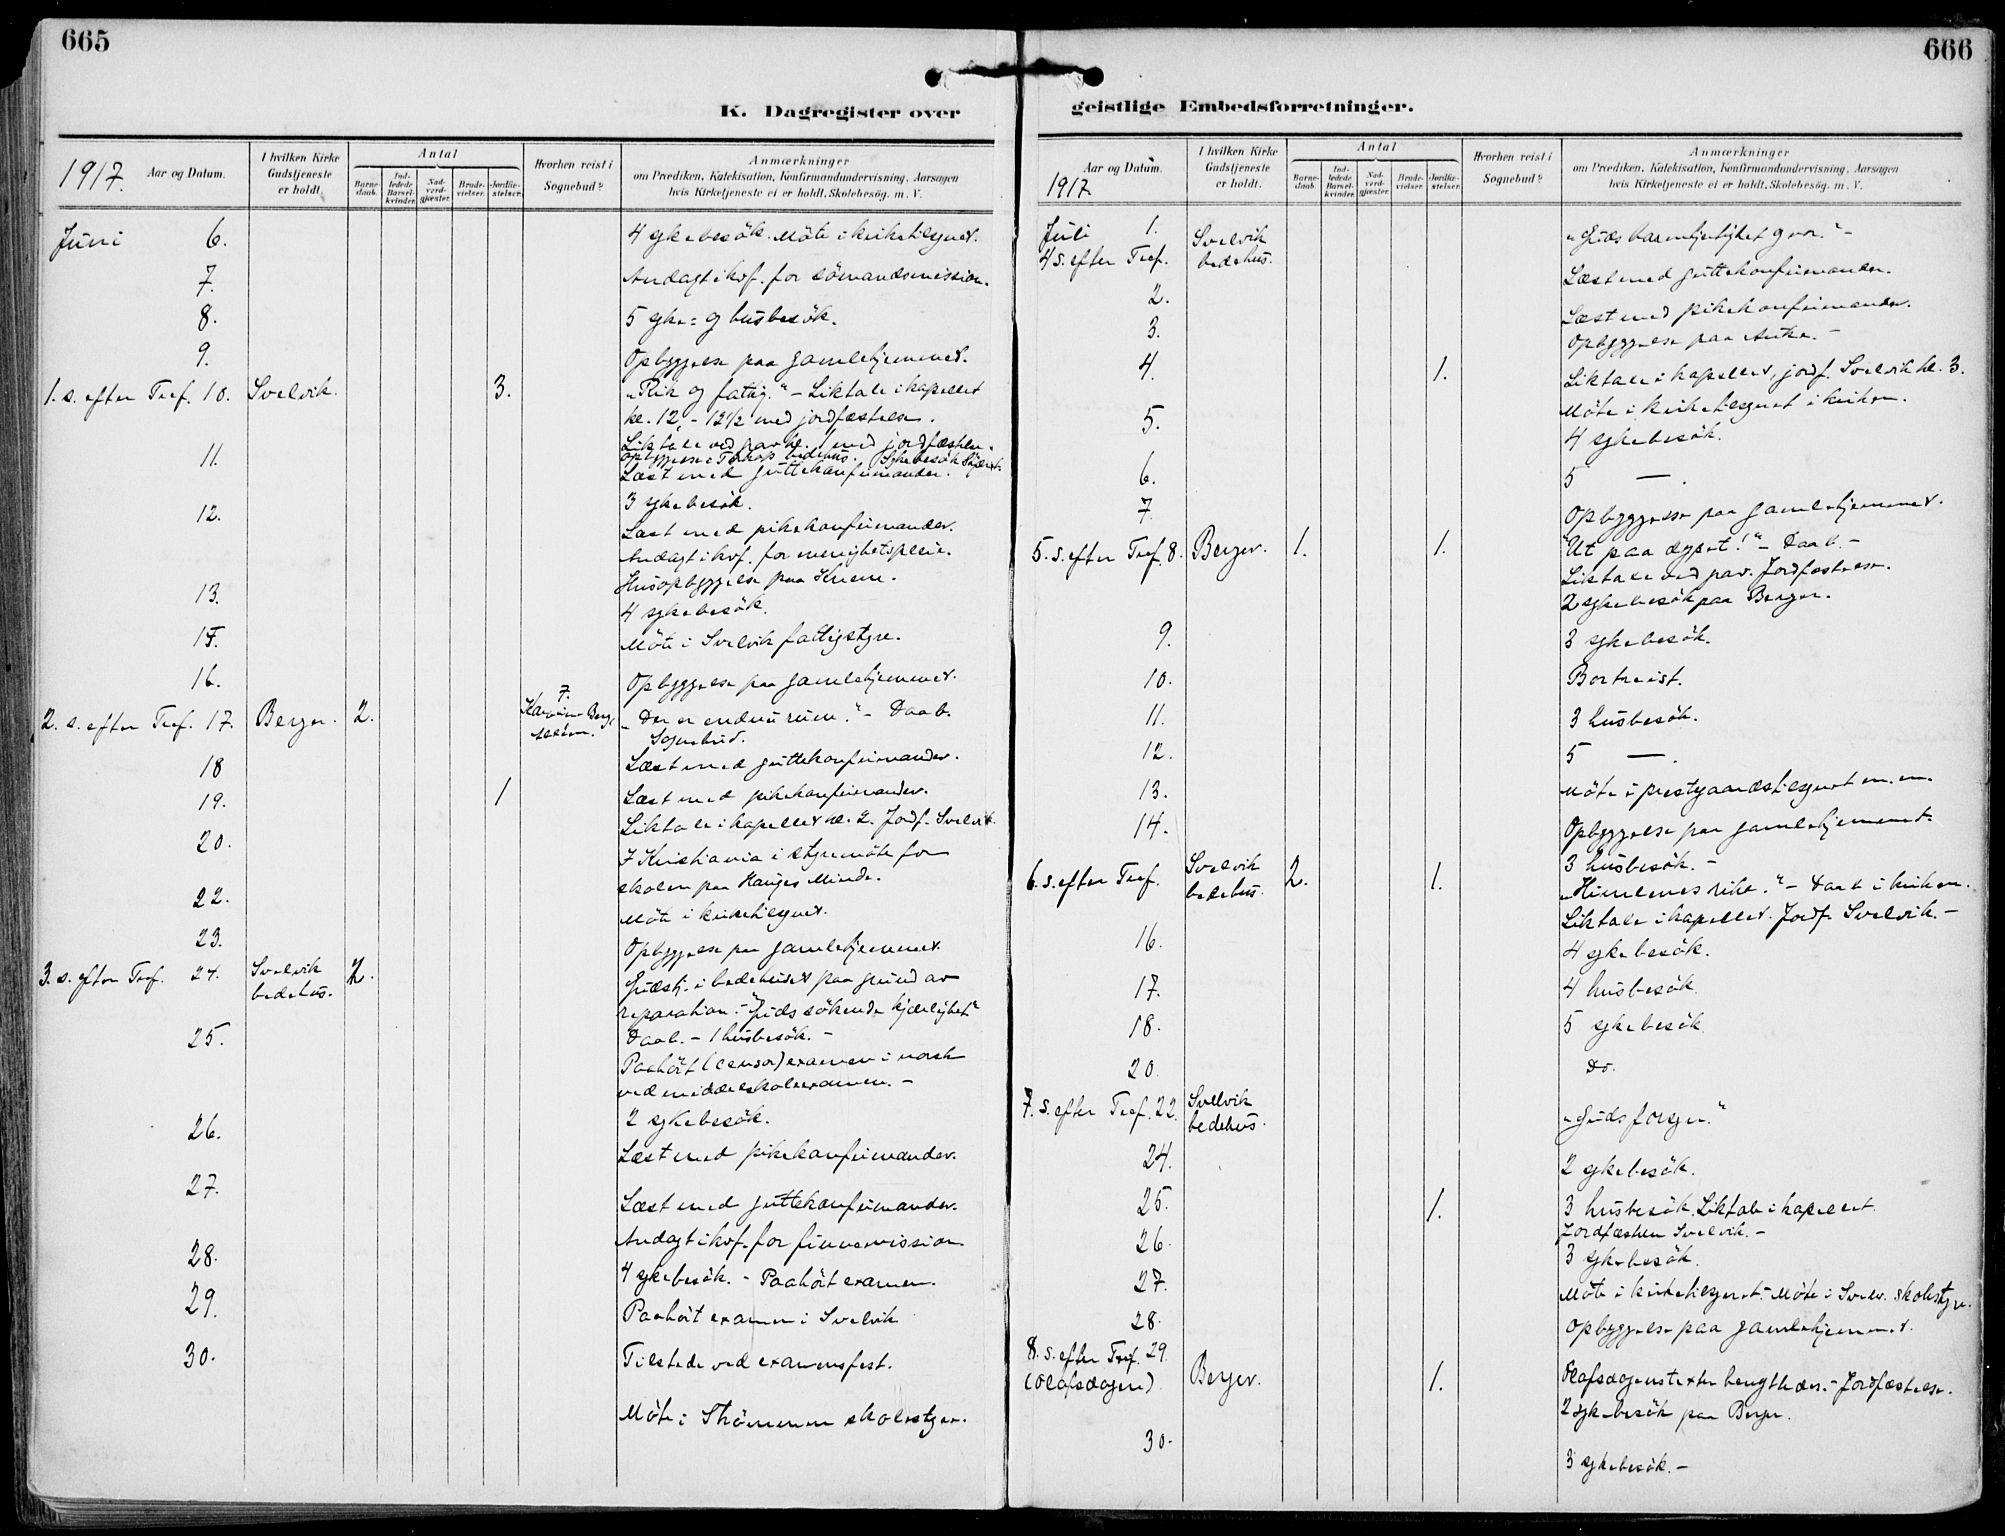 665
K. Dagregister over
1917. Aar og Datum.
I hvilken Kirke Gudstjeneste er holdt.
Antal
Barne-daab.
Ind-ledede Barsel-kvinder.
Nad-verd-gjæster.
Brude-vielser.
Jordfæ-stelser.
Hvorhen reist i Sognebud?
Anmærkninger
om Prædiken, Katekisation, Konfirmandundervisning, Aarsagen
hvis Kirketjeneste ei er holdt, Skolebesøg, m. V.
Juni 6. 4 sykebesök. Möte i kirketilsynet.
7. Andagt i kvf. for sömandsmission.
8. 5 syke= og husbesök.
9. Opbyggelse paa gamlehjemmet.
1. s. efter Tref. 10. Svelvik. 3. „Rik og fattig." – Liktale i kapellet
kl. 12, – 12½ med jordfæstelse.
Liktale ved grav kl. 1 med jordfæstelse.
11. Opbyggelse i bedehus. Sykebesök
Læst med guttekonfirmander.
3 sykebesök.
12. Læst med pikekonfirmander.
Andagt i kvf. for menighetspleie.
Husopbyggelse paa
13. 4 sykebesök.
15. Möte i Svelvik fattigstyre.
16. Opbyggelse paa gamlehjemmet.
2. s. efter Tref. 17. Berger. 2. 7. „Der er endnu rum." – Daab.
Sognebud.
18 Læst med guttekonfirmander.
19. 1 Læst med pikekonfirmander.
Liktale i kapellet kl. 2. Jordf. Svelvik.
20. I Kristiania i styremöte for
skolen paa Hauges Minde.
22. Möte i kirketilsynet.
23. Opbyggelse paa gamlehjemmet
3. s. efter Tref. 24. Svelvik bedehus. 2. Gudstj. i bedehuset paa grund av
reparation. – "Guds sökende kjærlighet"
Daab. – 1 husbesök. –
25. Paahört (censor) examen i norsk
ved middelskoleexamen. –
2 sykebesök.
26. Læst med pikekonfirmander.
27. Læst med guttekonfirmander.
Andagt i kvf. for finnemission
28. 4 sykebesök. – Paahört examen.
29. Paahört examen i Svelvik
30. Tilstede ved examensfest.
Möte i Strömmen skolestyre.
666
geistlige Embedsforretninger.
Aar og Datum.
1917
I hvilken Kirke Gudstjeneste er holdt.
Antal
Barne-daab.
Ind-ledede Barsel-kvinder.
Nad-verd-gjæster.
Brude-vielser.
Jordfæ-stelser.
Hvorhen reist i Sognebud?
Anmærkninger
om Prædiken, Katekisation, Konfirmandundervisning, Aarsagen
hvis Kirketjeneste ei er holdt, Skolebesøg, m. V.
Juli 1. Svelvik „Guds barmhjertighet " –
4 s. efter Tref. bedehus.
2. Læst med guttekonfirmander.
3. Læst med pikekonfirmander.
Opbyggelse paa
4. 1. Liktale i kapellet, jordf. Svelvik kl. 3.
Möte i kirketilsynet i kirken.
5. 4 sykebesök.
6. 5 — .
7. Opbyggelse paa gamlehjemmet.
5. s. efter Tref. 8. Berger. 1. 1. „Ut paa dypet!" – Daab. –
Liktale ved grav. Jordfæstelse.
2 sykebesök paa Berger.
9. 3 sykebesök.
10. Bortreist.
11. 3 husbesök.
12. 5 — .
13. Möte i prestgaardstilsynet m.m.
14. Opbyggelse paa gamlehjemmet.
3 husbesök. –
6. s. efter Tref. Svelvik bedehus. 2. 1. „Himlenes rike." – Daab i kirken.
Liktale i kapellet. Jordf. Svelvik. –
16. 4 sykebesök.
17. 4 husbesök
18. 5 sykebesök.
20. Do.
7. s. efter Tref. 22. Svelvik bedehus. „Guds forsyn."
24. 2 sykebesök.
25. 1. 3 husbesök. Liktale i kapellet.
Jordfæstelse Svelvik. –
26. 3 sykebesök.
27. Möte i kirketilsynet. – Möte i Svelv. skolestyre.
28. Opbyggelse paa gamlehjemmet.
8. s. efter Tref. 29.
(Olafsdagen) Berger. 1. Olafsdagens texter benyttedes. – Jordfæstelse.
2 sykebesök paa Berger.
30. 3 sykebesök. –